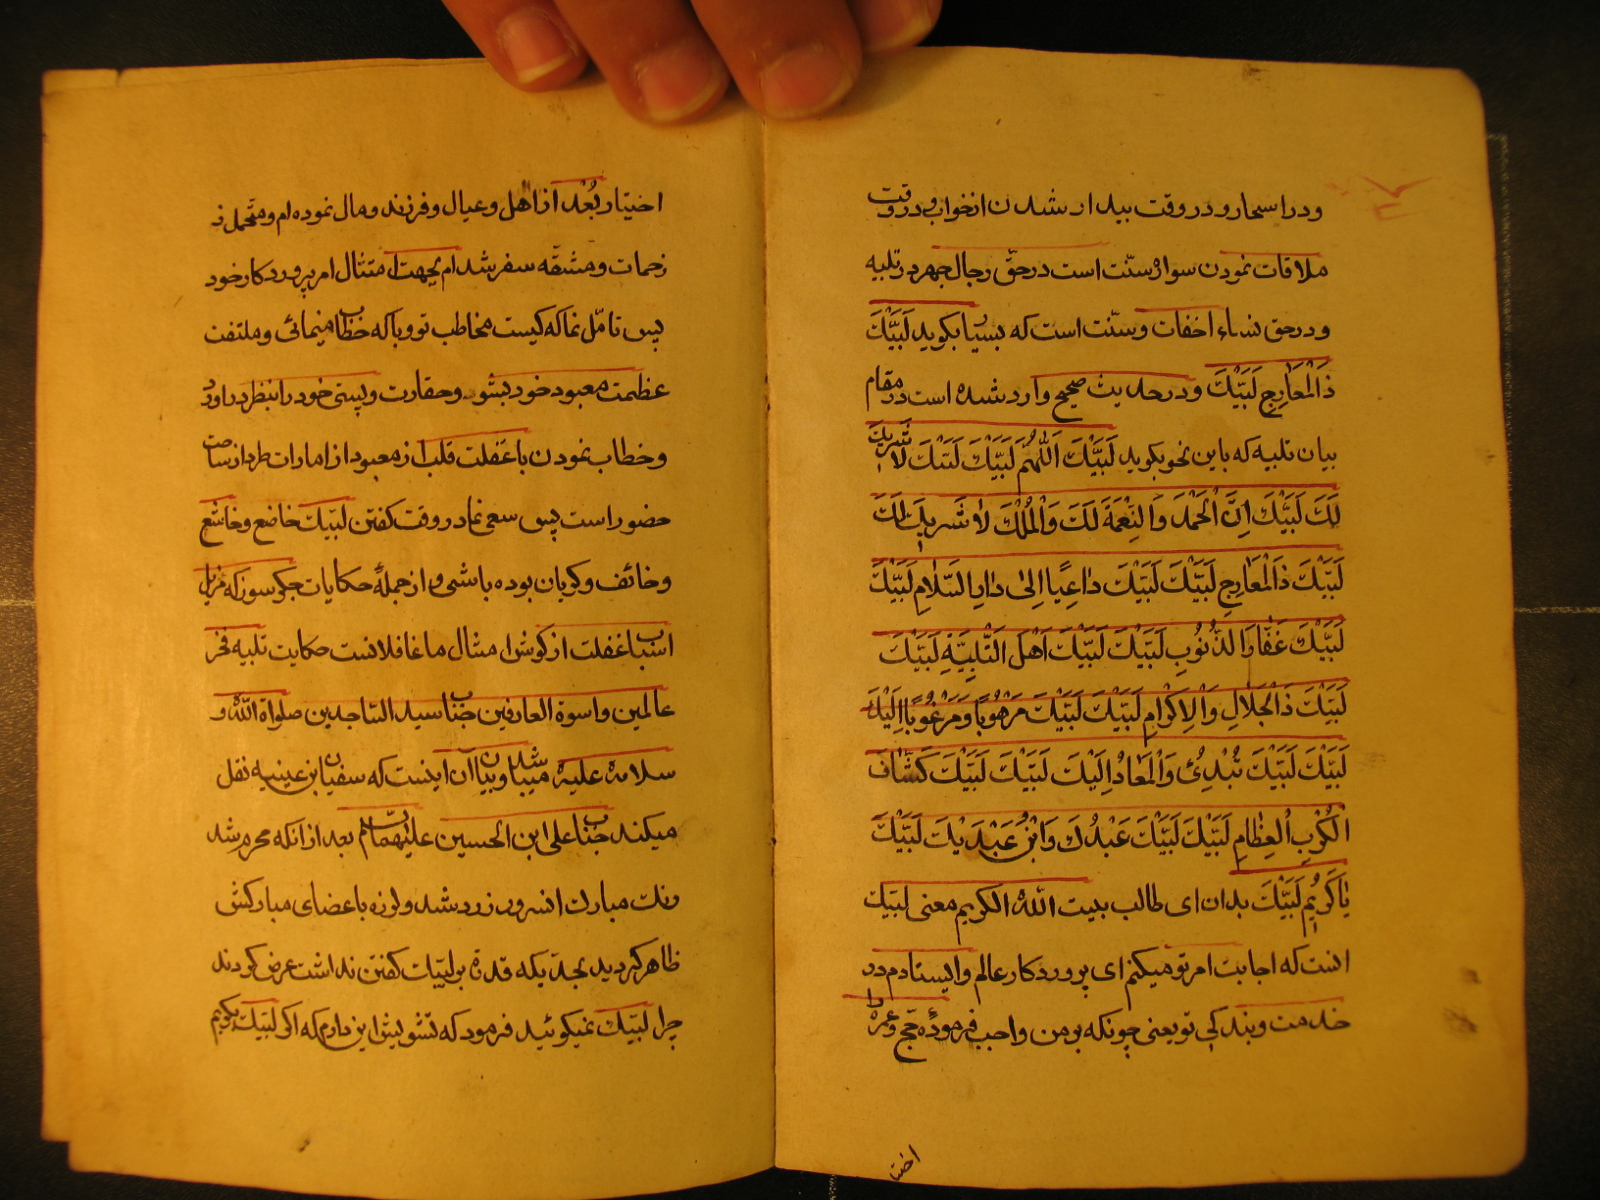 ودر اسحار ودر وقت بیدار شدن از خواب ودر وقت
ملاقات نمودن سواره سنّت است در حقّ رجال جهر در تلبیه
ودر حق نساء اخفات وسنّت است که بسیار بکوید لَبَّیْكَ
ذَالْمَعَارِجِ لَبَّیْكَ ودر حدیث صحیح وارد شده است در مقام
بیان تلبیه که باین نحو بکوید لَبَّیْكَ اَللّٰهُمَّ لَبَّیْكَ لَبَّیْكَ لا شَرِیكَ
لَكَ لَبَّیْكَ اِنَّ الْحَمْدَ وَالنِّعْمَةَ لَكَ وَالْمُلْكَ لا شَرِیكَ لَكَ
لَبَّیْكَ ذَالْمَعَارِجِ لَبَّیْكَ لَبَّیْكَ دَاعِیًا اِلىٰ دَارِ السَّلاٰمِ لَبَّیْكَ
لَبَّیْكَ غَفَّارَ الذُّنُوبِ لَبَّیْكَ لَبَّیْكَ اَهْلَ التَّلْبِیَةِ لَبَّیْكَ
لَبَّیْكَ ذَالْجَلاٰلِ وَالْاِكْرَامِ لَبَّیْكَ لَبَّیْكَ مَرْهُوبًا وَمَرْغُوبًا اِلَیْكَ
لَبَّیْكَ لَبَّیْكَ تُبْدِئُ وَالْمَعَادُ اِلَیْكَ لَبَّیْكَ لَبَّیْكَ كَشَّافَ
الْكُرَبِ الْعِظٰامِ لَبَّیْكَ لَبَّیْكَ عَبْدُكَ وَابْنُ عَبْدَیْكَ لَبَّیْكَ
یٰا كَرِیْمُ لَبَّیْكَ بدان ای طالب بیت اللّٰه الکریم معنی لبّیك
انست که اجابت امر تو میکنم ای پروردکار عالم وایستادم در
خدمت وبندکی تو یعنی چونکه بر من واجب فرمودهٔ حجّ وعمره را
اختیار بُعْد از اهل وعیال وفرزند ومال نموده ام ومتحمل
زحمات ومشقّه سفر شد ام بجهت امتثال امر پروردکار خود
پس تامّل نما که کیست مخاطب تو وباکه خطاب مینمائی وملتفت
عظمت معبود خود بشو وحقارت وپستی خود را بنظر در اور
وخطاب نمودن با غفلت قلب از معبود از امارات طرد از ساحت
حضور است پس سعی نما در وقت کفتن لبّیك خاضع وخاشع
وخائف وکریان بوده باشی واز جملهٔ حکایات جکر سوز که مزیل
اسباب غفلت از کوش امثال ما غافلانست حکایت تلبیه فخر
عالمین واسوة العارفین جناب سید السّاجدین صلواة اللّٰه و
سلامه علیه میباشد وبیان آن اینست که سفیان ابن عینیه نقل
میکند جناب علی ابن الحسین علیهما السّلام بعد از انکه محرم شد
رنك مبارك انسرور زرد شد ولرزه باعضای مبارکش
ظاهر کردید بحدّیکه قدرة بر لبّیك کفتن نداشت عرض کردند
چرا لبّیك نمیکوئید فرمود که تشویش این دارم که اکر لبّیك بکویم
اختیا